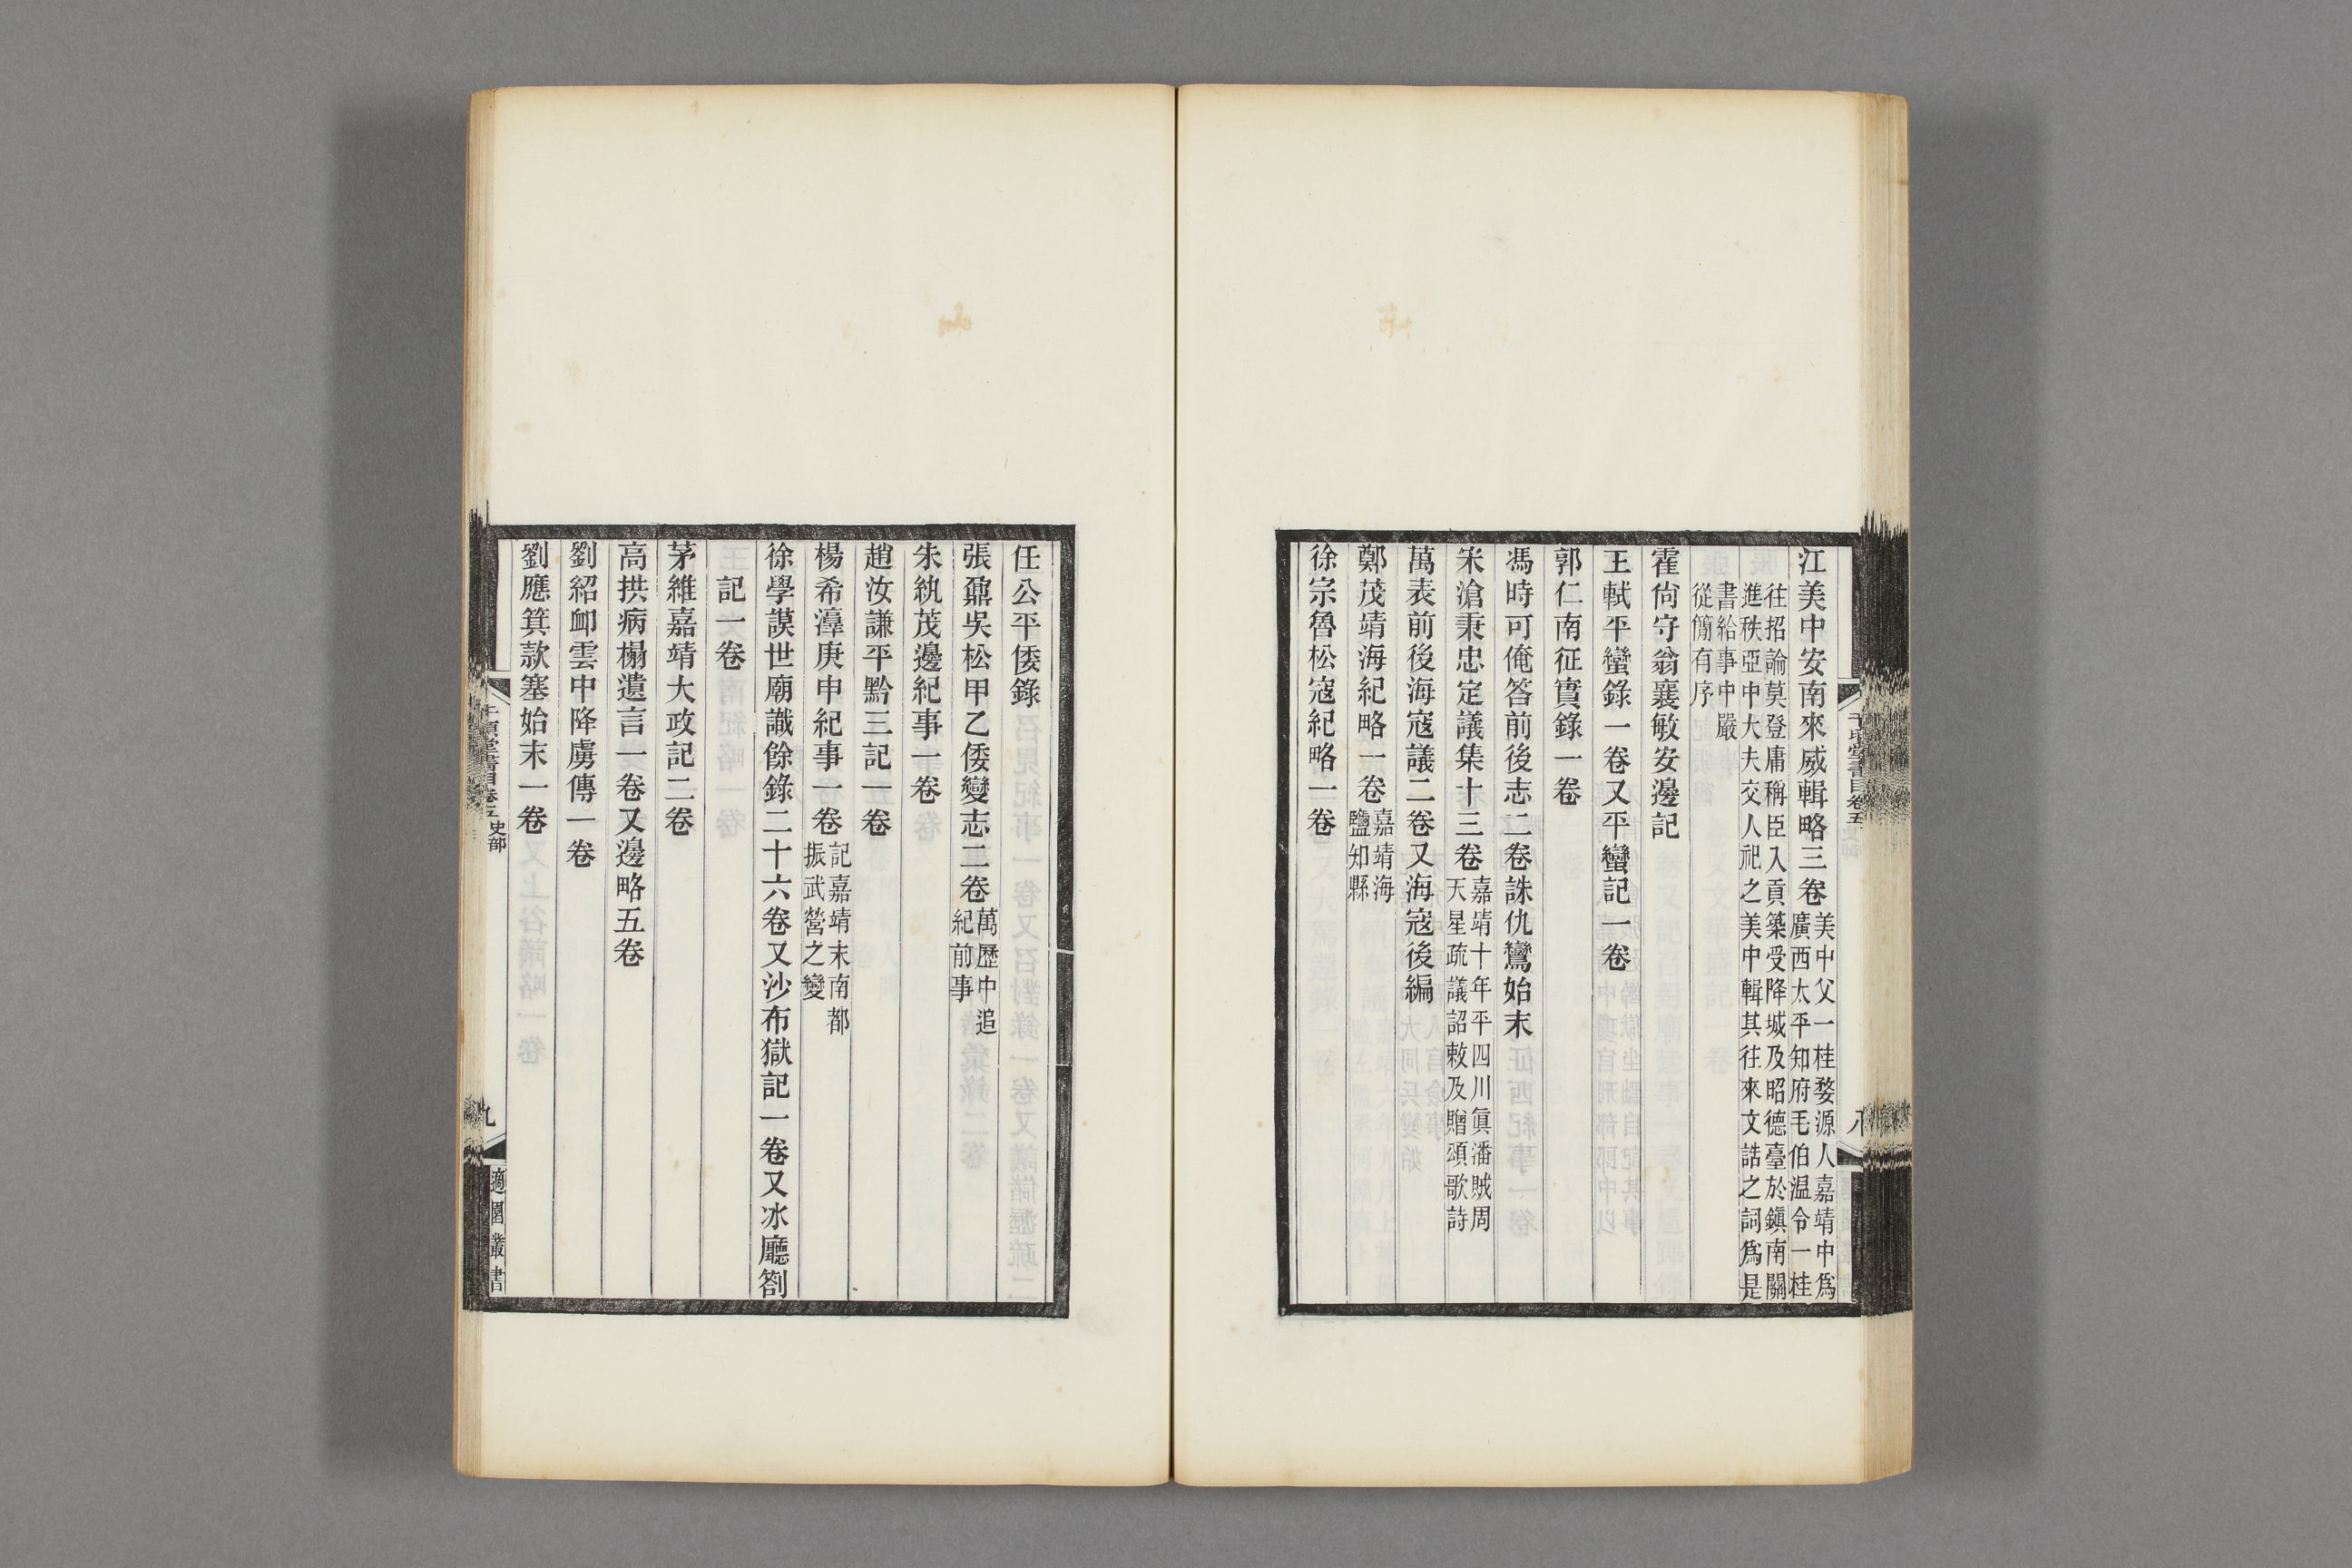 江美中安南來威輯略三卷美中父一桂婺源人嘉靖中爲廣西太平知府毛伯温令一桂
往招諭莫登庸稱臣入貢築受降城及昭德臺於鎭南關進秩亞中大夫交人祀之美中輯其往來文誥之詞爲是
書給事中嚴從簡有序
霍尙守翁襄敏安邊記
王軾平蠻錄一卷又平蠻記一卷
郭仁南征實錄一卷
馮時可俺答前後志二卷誅仇鸞始末
宋滄秉忠定議集十三卷嘉靖十年平四川眞潘賊周天星疏議詔敕及贈頌歌詩
萬表前後海寇議二卷又海寇後編
鄭茂靖海紀略一卷嘉靖海鹽知縣
徐宗魯松寇紀略二卷
千頃堂書目卷五
八
任公平倭錄
張鼐吳松甲乙倭變志二卷萬歷中追紀前事
朱紈茂邊紀事一卷
趙汝謙平黔三記一卷
楊希濂庚申紀事一卷記嘉靖末南都振武營之變
徐學謨世廟識餘錄二十六卷又沙布獄記一卷又冰廳劄
記一卷
茅維嘉靖大政記二卷
高拱病榻遺言一卷又邊略五卷
劉紹卹雲中降虜傳一卷
劉應箕款塞始末一卷
千頃堂書目卷五 史部
九
適園叢書